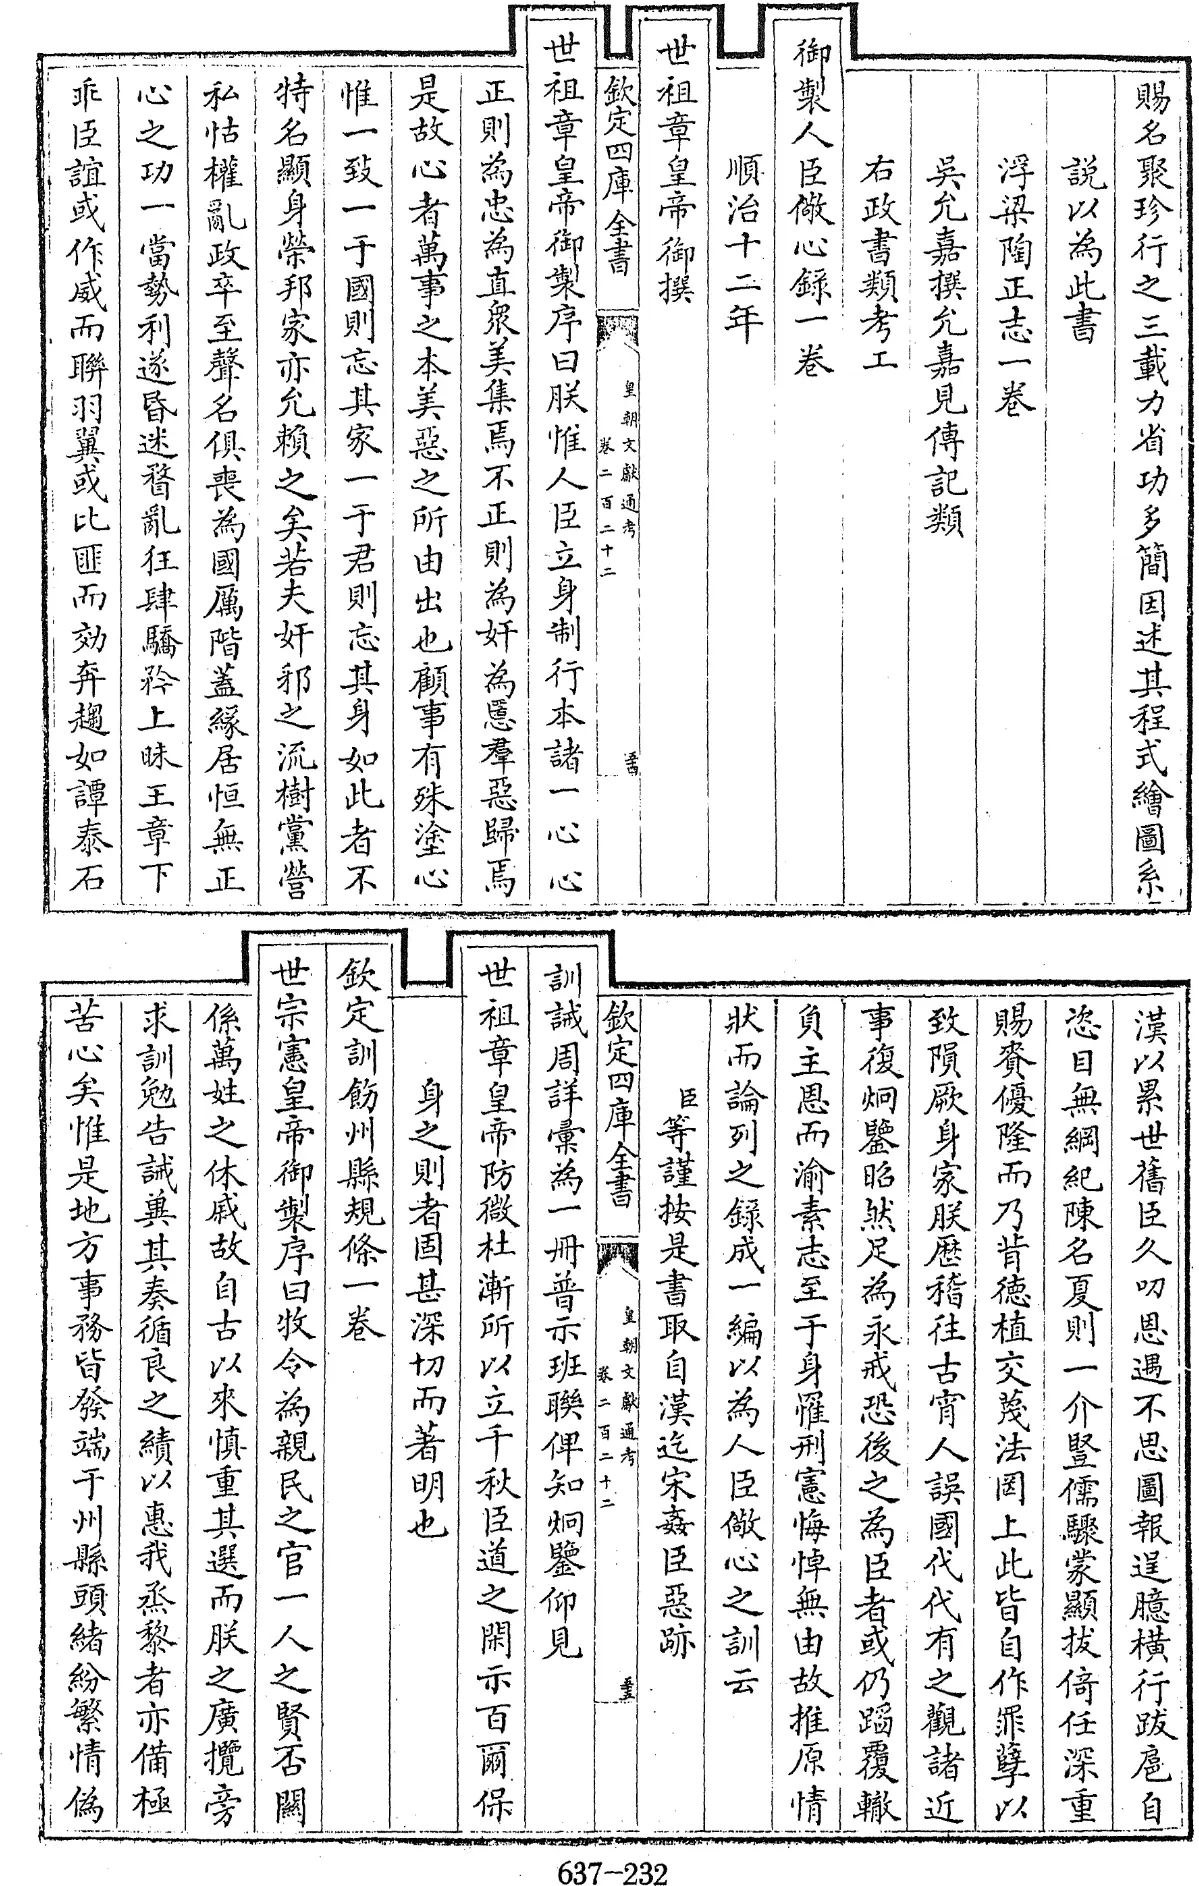 賜名聚珍行之三載力省功多簡因述其程式繪圖系
說以為此書
浮梁陶正志一卷
吳允嘉撰允嘉見傳記類
右政書類考工
御製人臣儆心錄一卷
順治十二年
世祖章皇帝御撰
欽定四庫全書
皇朝文獻通考
卷二百二十二
世祖章皇帝御製序曰朕惟人臣立身制行本諸一心心
正則為忠為直衆美集焉不正則為奸為慝羣惡歸焉
是故心者萬事之本美惡之所由出也顧事有殊塗心
惟一致一于國則忘其家一于君則忘其身如此者不
特名顯身榮邦家亦允賴之矣若夫奸邪之流樹黨營
私怙權亂政卒至聲名俱喪為國厲階蓋緣居恒無正
心之功一當勢利遂昏迷瞀亂狂肆驕矜上昧王章下
乖臣誼或作威而聯羽翼或比匪而効奔趨如譚泰石
漢以累世舊臣久叨恩遇不思圖報逞臆橫行跋扈自
恣目無綱紀陳名夏則一介豎儒驟蒙顯拔倚任深重
賜賚優隆而乃背德植交蔑法罔上此皆自作罪孽以
致隕厥身家朕歷稽往古宵人誤國代代有之觀諸近
事復炯鑒昭然足為永戒恐後之為臣者或仍蹈覆轍
負主恩而渝素志至于身罹刑憲悔悼無由故推原情
狀而論列之錄成一編以為人臣儆心之訓云
臣等謹按是書取自漢迄宋姦臣惡跡
欽定四庫全書
皇朝文獻通考
卷二百二十二
訓誡周詳彙為一冊普示班聯俾知炯鑒仰見
世祖章皇帝防微杜漸所以立千秋臣道之閑示百爾保
身之則者固甚深切而著明也
欽定訓飭州縣規條一卷
世宗憲皇帝御製序曰牧令為親民之官一人之賢否關
係萬姓之休戚故自古以來慎重其選而朕之廣攬旁
求訓勉告誡冀其奏循良之績以惠我烝黎者亦備極
苦心矣惟是地方事務皆發端于州縣頭緒紛繁情偽
637-232